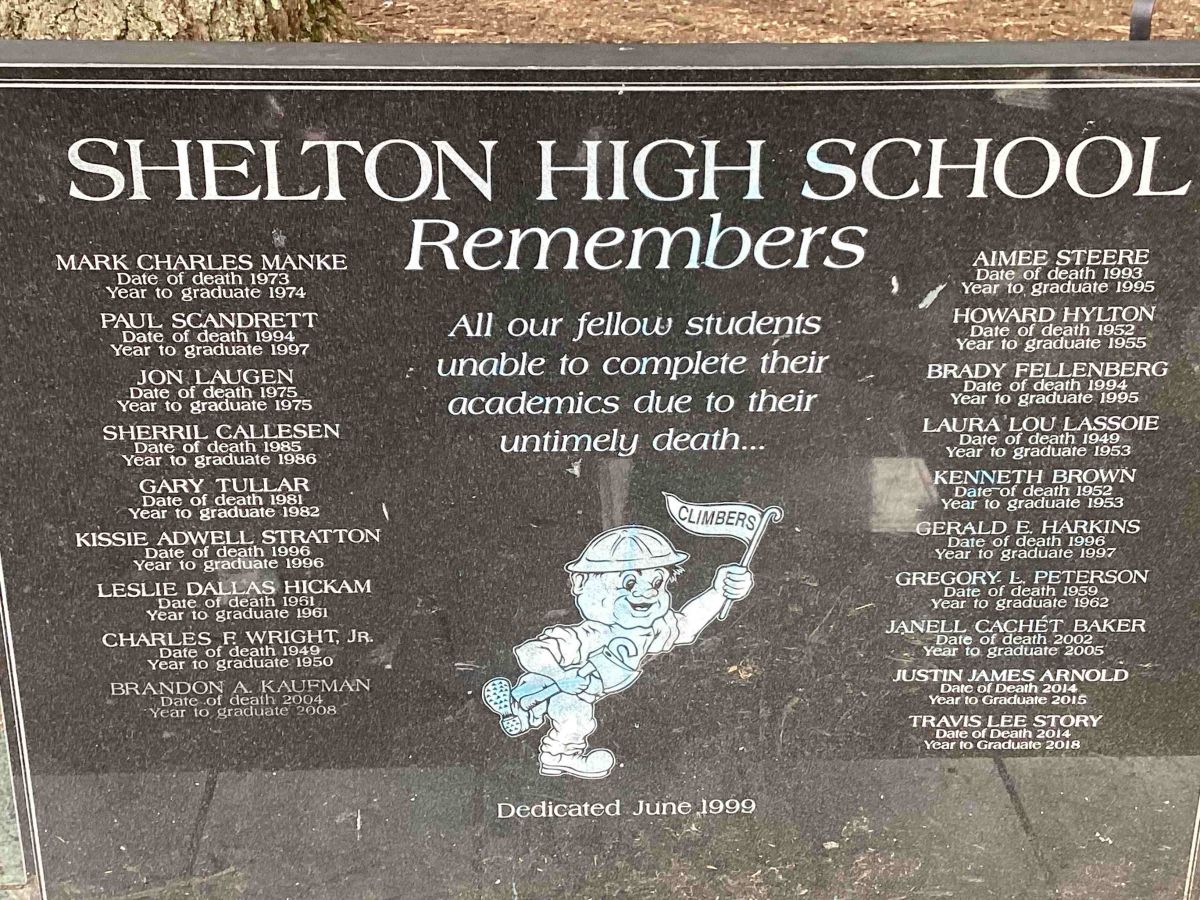 SHELTON HIGH SCHOOL
Remembers
MARK CHARLES MANKE
Date of death 1973
Year to graduate 1974
PAUL SCANDRETT
Date of death 1994
Year to graduate 1997
JON LAUGEN
Date of death 1975
Year to graduate 1975
SHERRIL CALLESEN
Date of death 1985
Year to graduate 1986
GARY TULLAR
Date of death 1981
Year to graduate 1982
KISSIE ADWELL STRATTON
Date of death 1996
Year to graduate 1996
LESLIE DALLAS HICKAM
Date of death 1961
Year to graduate 1961
CHARLES F. WRIGHT, JR.
Date of death 1949
Year to graduate 1950
BRANDON A. KAUFMAN
Date of death 2004
Year to graduate 2008
All our fellow students
unable to complete their
academics due to their
untimely death...
CLIMBERS
C
Dedicated June 1999
AIMEE STEERE
Date of death 1993
Year to graduate 1995
HOWARD HYLTON
Date of death 1952
Year to graduate 1955
BRADY FELLENBERG
Date of death 1994
Year to graduate 1995
LAURA LOU LASSOIE
Date of death 1949
Year to graduate 1953
KENNETH BROWN
Date of death 1952
Year to graduate 1953
GERALD E. HARKINS
Date of death 1996
Year to graduate 1997
GREGORY L. PETERSON
Date of death 1959
Year to graduate 1962
JANELL CACHÉT BAKER
Date of death 2002
Year to graduate 2005
JUSTIN JAMES ARNOLD
Date of Death 2014
Year to Graduate 2015
TRAVIS LEE STORY
Date of Death 2014
Year to Graduate 2018